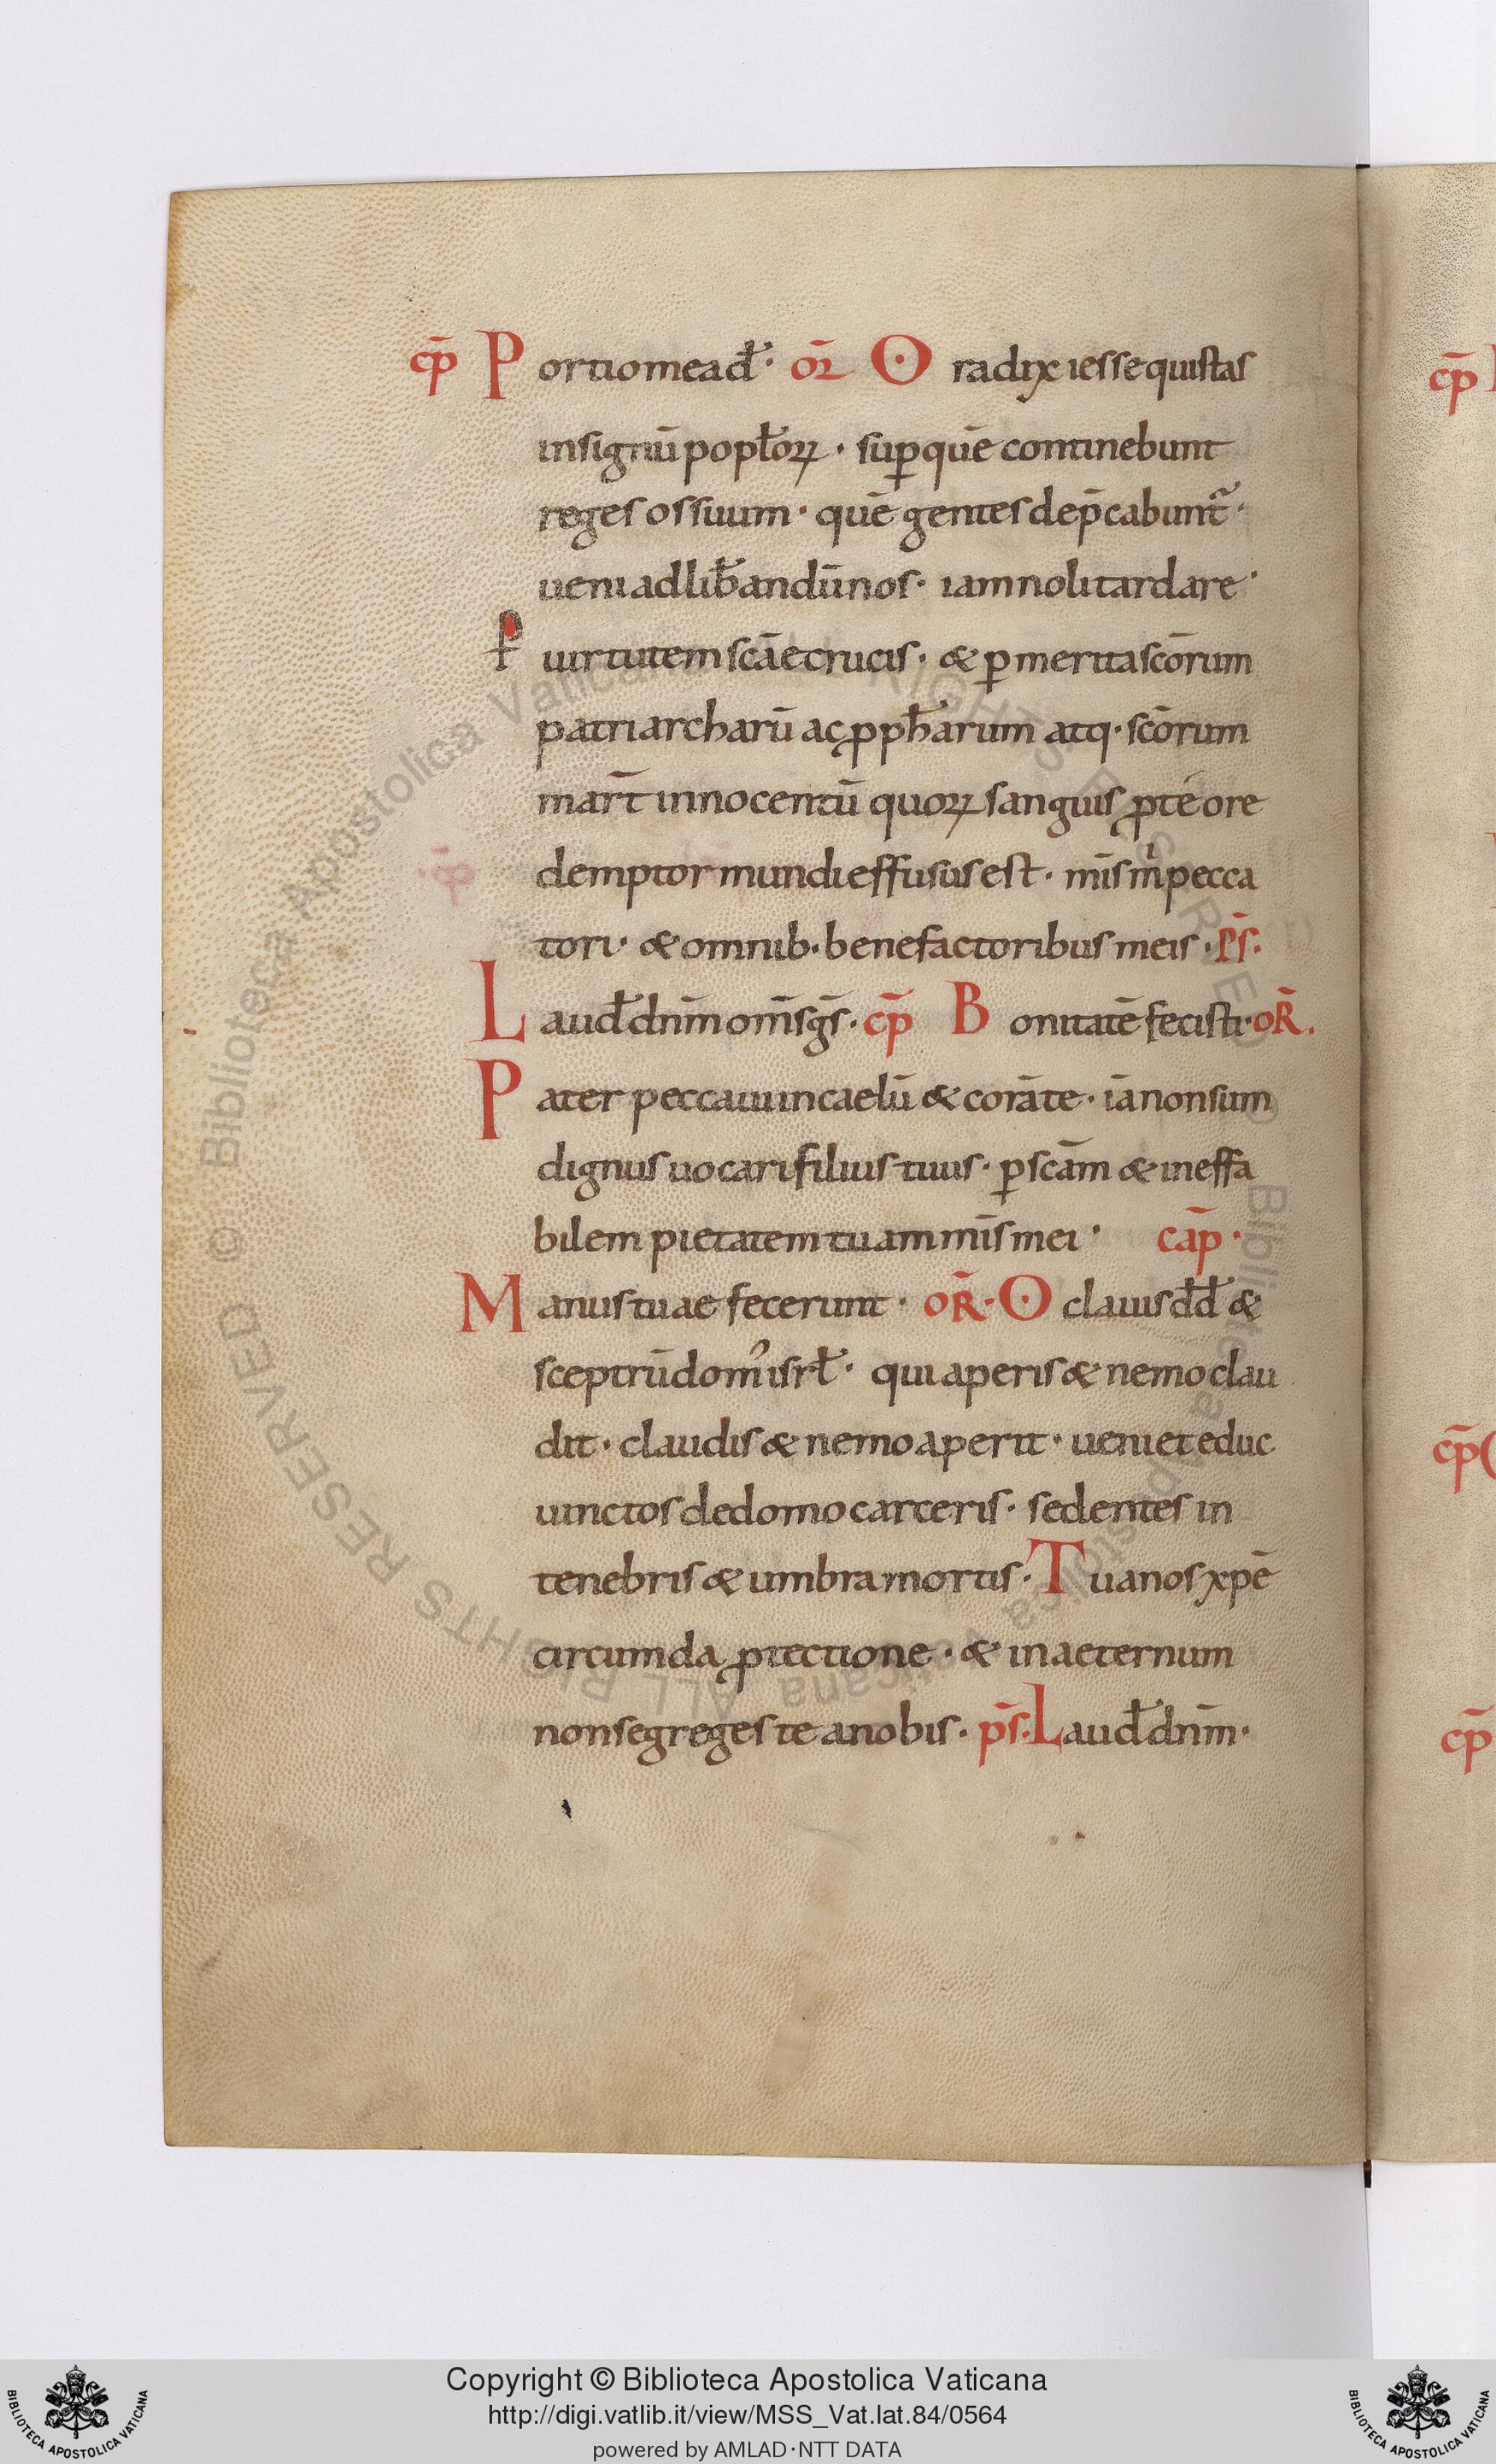 cp̄ P ortio mea dł· or̄ O radix iesse qui stas
in signū poptorꝝ · suꝑ quē continebunt
reges os suum · quē gentes dep̄cabunt̄·
ueni ad lib̄andū nos · iam noli tardare·
P̱ uirtutem scāe crucis · & ꝑ merita scōrum
patriarcharū ac ꝓpħarum atq· scōrum
mart̄ innocentū quorꝝ sanguis ꝓ te ó re
demptor mundi effusus est · mīs mⁱ pecca
tori · & omnib· benefactoribus meis · p̄s·
L aud̄ dn̄m om̄s gs̄· cp̄ B onitatē fecisti· or̄.
P ater peccaui in caelū & corā te · iā non sum
dignus uocari filius tuus · ꝑ scām & ineffa
bilem pietatem tuam mīs mei · cap̄·
M anus tuae fecerunt · or̄· O clauis dd̄ &
sceptrū dom᾽ isrł· qui aperis & nemo clau
dit · claudis & nemo aperit · ueni et educ
uinctos de domo carceris · sedentes in
tenebris & umbra mortis · T ua nos xpē
circumda ꝓtectione · & in aeternum
non segreges te a nobis · p̄s· Laud̄ dn̄m·
cp̄
cp̄
cp̄
© Biblioteca Apostolica Vaticana ALL RIGHTS RESERVED
© Biblioteca Apostolica Vaticana ALL RIGHTS RESERVED
Copyright © Biblioteca Apostolica Vaticana
http://digi.vatlib.it/view/MSS_Vat.lat.84/0564
powered by AMLAD·NTT DATA
BIBLIOTECA APOSTOLICA VATICANA
BIBLIOTECA APOSTOLICA VATICANA